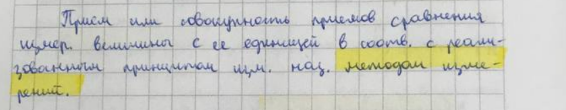 Прием или совокупность приемов сравнения
измер. величины с ее единицей в соотв. с реали-
зованным принципом изм. наз. методом изме-
рений.